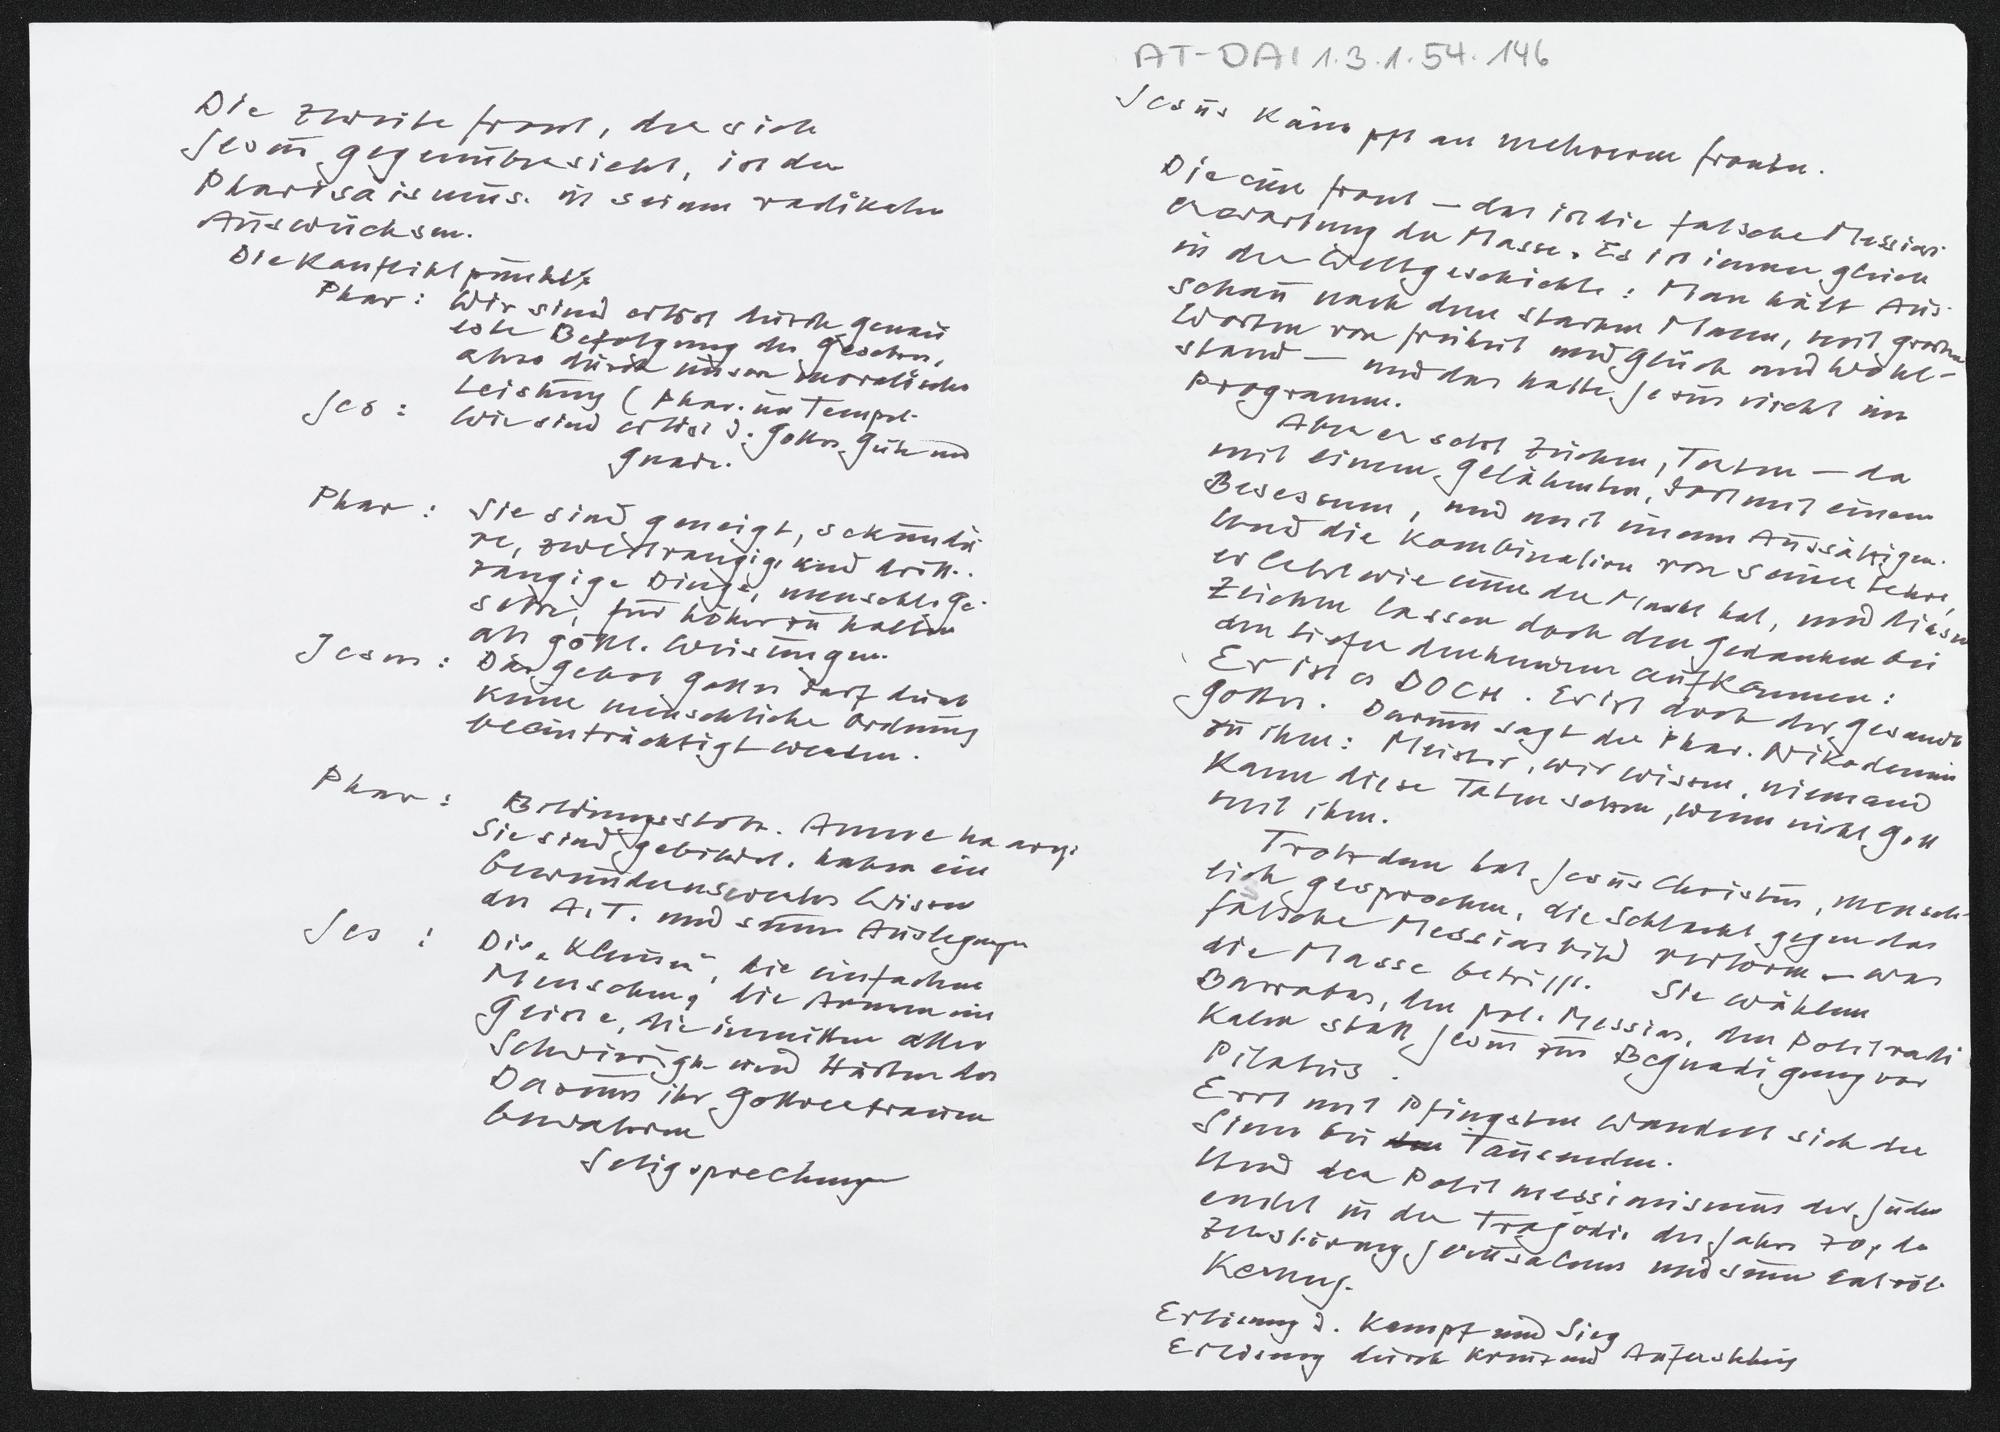 Die zweite Front, der sich
Jesus gegenübersieht, ist der
Pharisäismus in seinen radikalen
Auswüchsen.
Die Konfliktpunkte
Phar: Wir sind erlöst durch genau
este Befolgung des Gesetzes,
also durch unsere moralische
Leistung (Phar. im Tempel
Jes: Wir sind erlöst d. Gottes Güte und
Gnade.
Phar: Sie sind geneigt, sekundä
re, zweitrangige und dritt-
rangige Dinge, menschl. Ge-
setze, für höher zu halten
als göttl. Weisungen.
Jesus: Das Gebot Gottes darf durch
keine menschliche Ordnung
beeinträchtigt werden.
Phar: Bildungsstolz. Amme ha arez
Sie sind gebildet, haben ein
bewundernswertes Wissen
des A.T. und seiner Auslegungen
Jes: Die "Kleinen", die einfachen
Menschen, die Armen im
Geiste, die inmitten aller
Schwierigk. und Härten des
Daseins ihr Gottvertrauen
bewahren
Seligsprechungen
AT-DAI 1.3.1.54.146
Jesus kämpft an mehreren Fronten.
Die eine Front — das ist die falsche Messias
erwartung der Masse. Es ist immer gleich
in der Weltgeschichte: Man hält Aus-
schau nach dem starken Mann, mit großen
Worten von Freiheit und Glück und Wohl-
stand — und das hatte Jesus nicht im
Programm.
Aber er setzt Zeichen, Taten — da
mit einem Gelähmten, dort mit einem
Besessenen, und mit einem Aussätzigen.
Und die Kombination von seiner Lehre,
er lehrt wie einer der Macht hat, und diesen
Zeichen lassen doch den Gedanken bei
den tiefer denkenden aufkommen:
Er ist es DOCH. Er ist doch der Gesandte
Gottes. Darum sagt der Phar. Nikodemus
zu ihm: Meister, wir wissen, niemand
kann diese Taten setzen, wenn nicht Gott
mit ihm.
Trotzdem hat Jesus Christus, mensch-
lich gesprochen, die Schlacht gegen das
falsche Messiasbild verloren — was
die Masse betrifft. Sie wählen
Barrabas, den pol. Messias, den Politradi
kalen statt Jesus zur Begnadigung vor
Pilatus.
Erst mit Pfingsten wandelt sich der
Sinn bei Tausenden.
Und der Politmessianismus der Juden
endet in der Tragödie des Jahres 70, der
Zerstörung Jerusalems und seiner Entvöl-
kerung.
Erlösung d. Kampf und Sieg
Erlösung durch Kreuz und Auferstehung